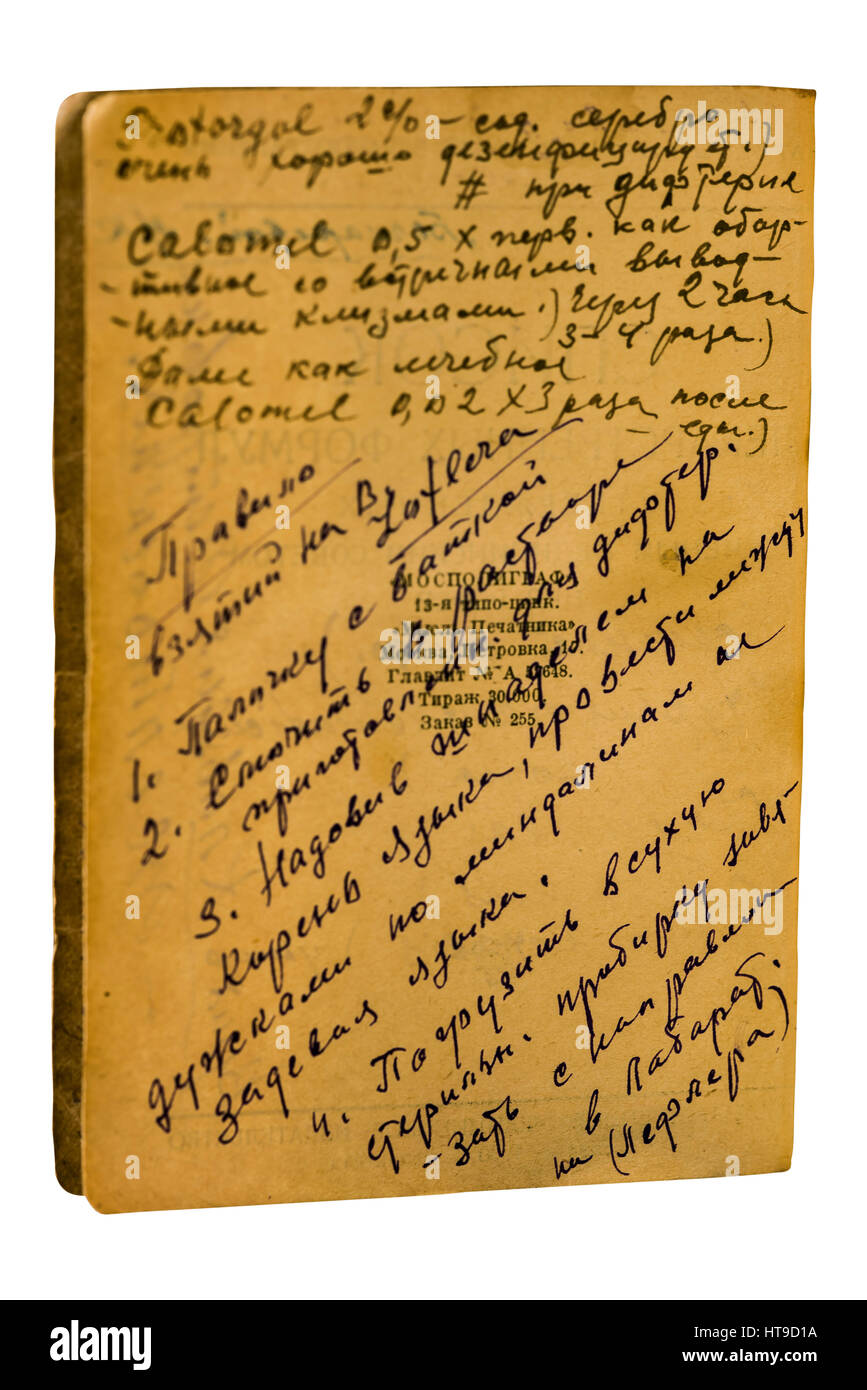 Protorgol 2% – сод. серебро
очень хорошо дезенфицирует.)
# при дифтерие
Calomel 0,5 X перв. как абор-
-тивное со встречными вывод-
-ными клизмами.) Через 2 часа
3–4 раза.)
Далее как лечебное
Calomel 0,02 X 3 раза после
еды.)
Правило
взятий на B. Loflera
1. Палочку с ваткой
2. Смочить в растворе
приготовлен. для дифтер.
3. Надовив шпаделем на
корень языка, провести между
дужками по миндалинам не
задевая языка.
4. Погрузить в сухую
стерильн. пробирку завя-
-зать с направлен-
в лабарат.
на (Лефлера)
МОСПОЛИГРАФ
13-я типо-цинк.
«Мысль Печатника»
Москва, Петровка, 17.
Главлит № А 5648.
Тираж 30.000.
Заказ № 255.
alamy
a
alamy
Image ID: HT9D1A
www.alamy.com